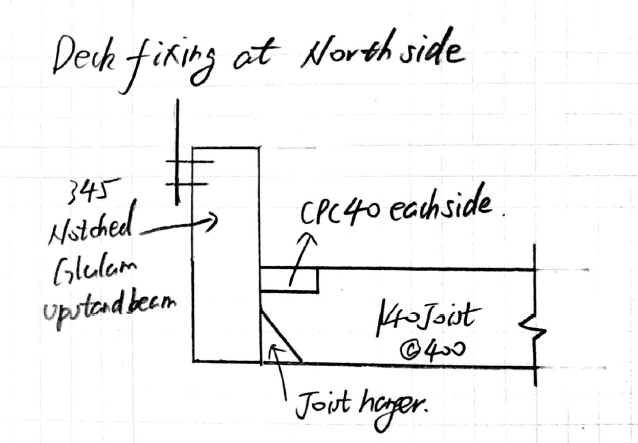 Deck fixing at North side
345
Notched
Glulam
upstand beam
CPC40 each side.
140 Joist
@400
Joist hanger.